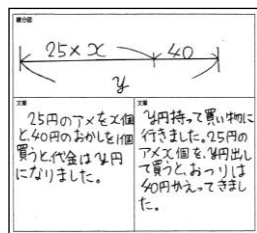 線分図
25×x 40
y
文章
25円のアメをx個
と、40円のおかしを1個
買うと、代金はy円
になりました。
文章
y円持って買い物に
行きました。25円の
アメx個を、y円出し
て買うと、おつりは
40円かえってきまし
た。